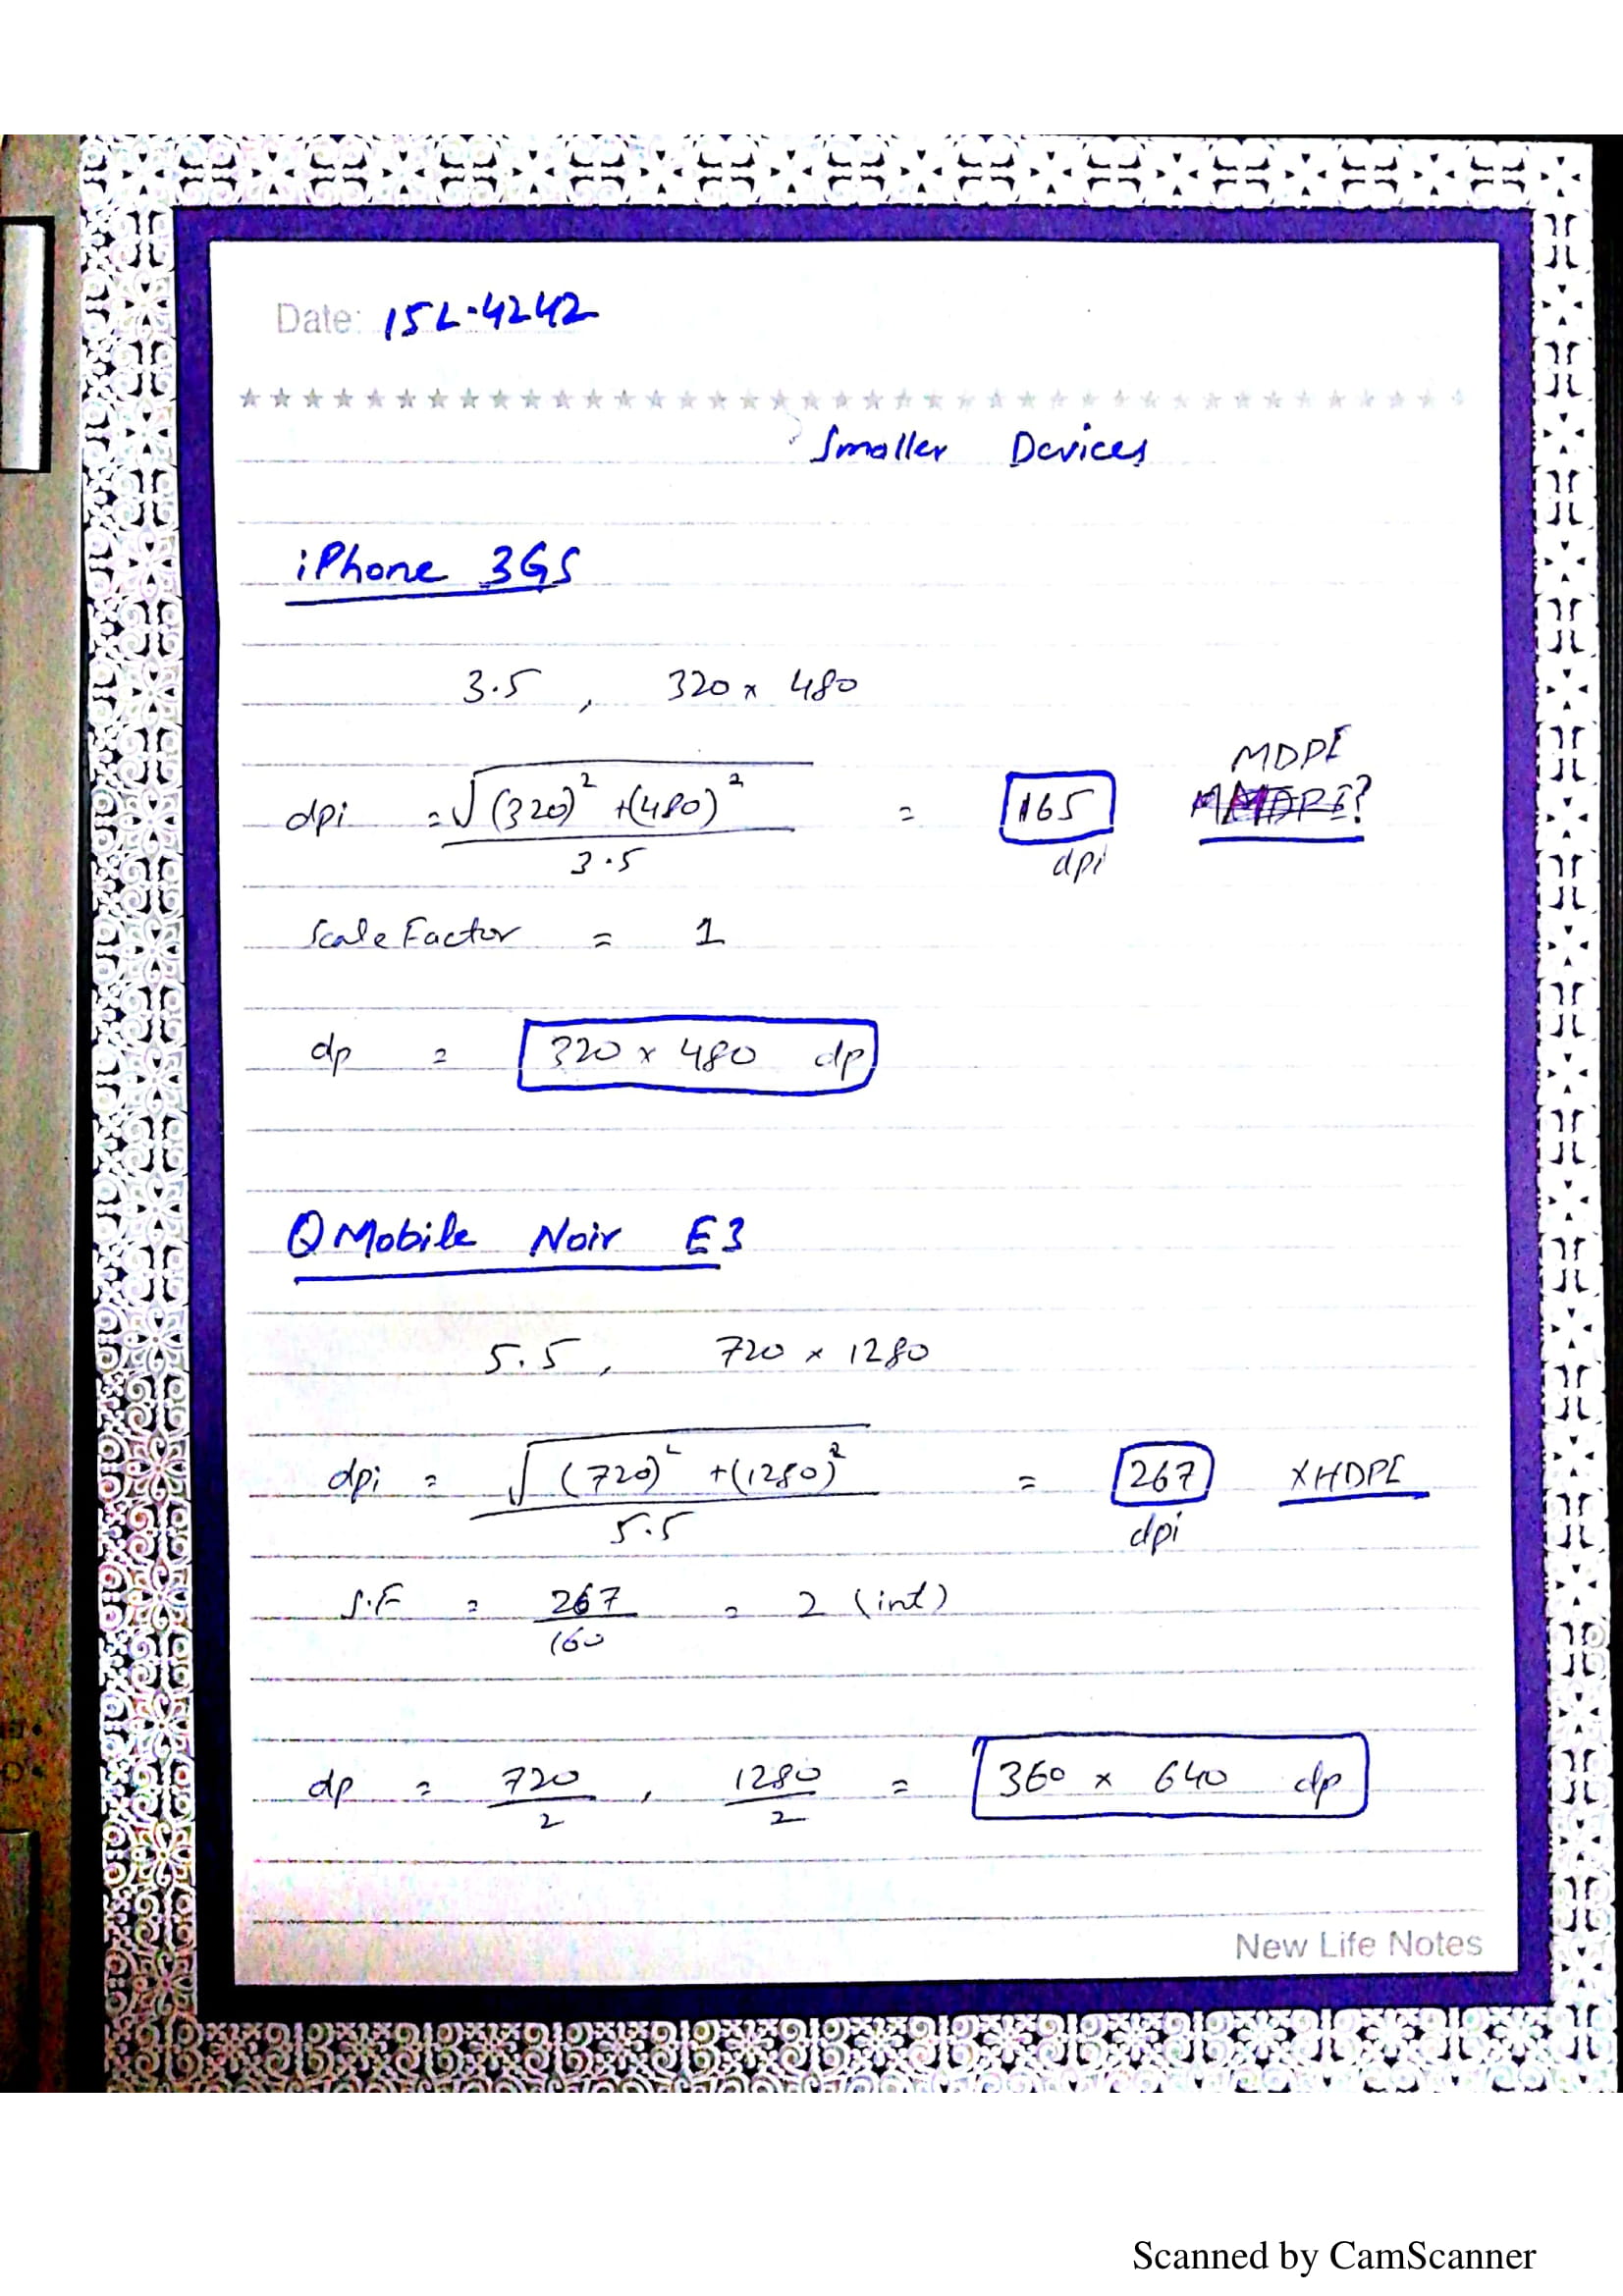 Date: 15L-4242
Smaller Devices
iPhone 3GS
3.5 , 320 x 480
MDPI
dpi = √(320)² + (480)² / 3.5 = 165 dpi ?
Scale Factor = 1
dp = 320 x 480 dp
QMobile Noir E3
5.5 , 720 x 1280
dpi = √(720)² + (1280)² / 5.5 = 267 dpi XHDPI
S.F = 267 / 160 = 2 (int)
dp = 720 / 2 , 1280 / 2 = 360 x 640 dp
New Life Notes
Scanned by CamScanner